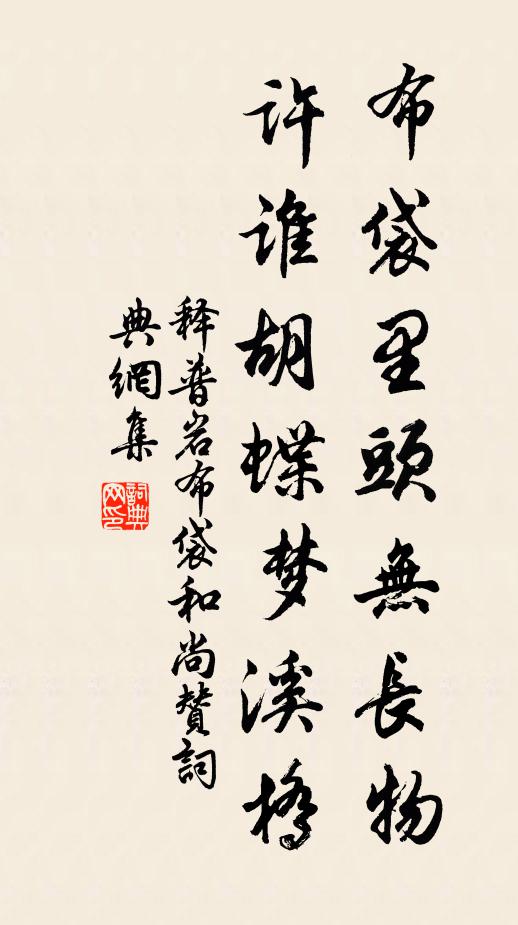 布袋里頭無長物
许谁胡蝶梦溪橋
释普岩布袋和尚賛詞
典網集
詞典
网印